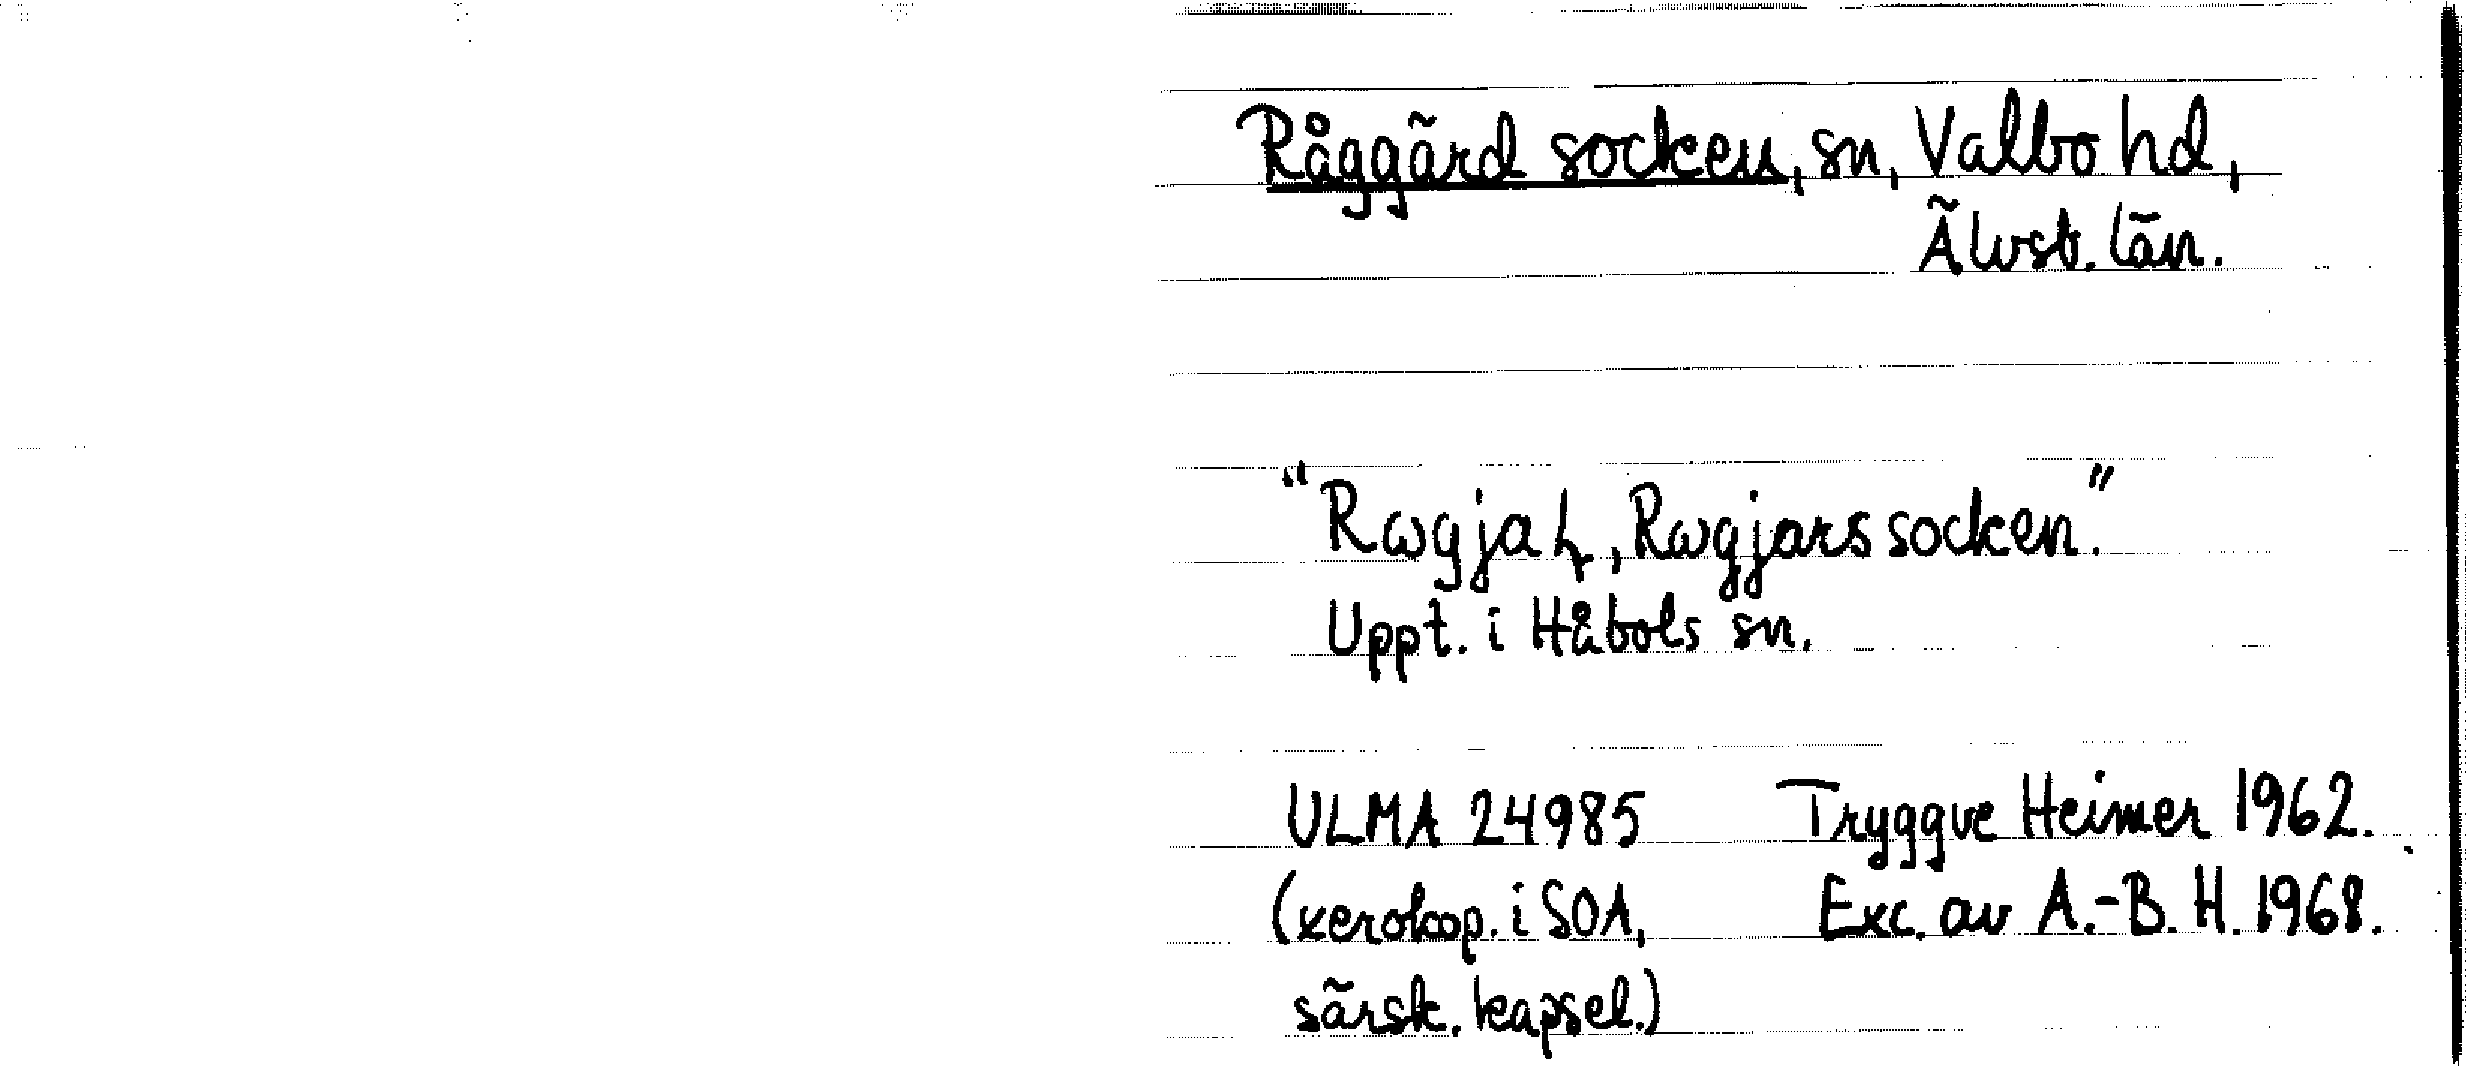 Råggärd socken, sn, Valbo hd,
Älvst. län.
"Rɷgjaꞕ, Rɷgjars socken."
Uppt. i Håbols sn.
ULMA 24985 Tryggve Heimer 1962.
(xerokop. i SOA, Exc. av A.-B. H. 1968.
särsk. kapsel.)